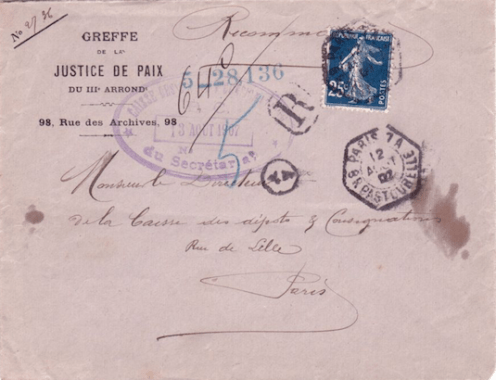 No 2736
Recommandé
GREFFE
DE LA
JUSTICE DE PAIX
DU IIIe ARRONDt
98, Rue des Archives, 98
64
28 136
5
R
RÉPUBLIQUE FRANÇAISE
25c
POSTES
13 AOUT 1907
du Secrétariat
PARIS 7A
12
AOUT
07
R. PASTOURELLE
Monsieur le Directeur
de la Caisse des dépots & Consignations
Rue de Lille
Paris